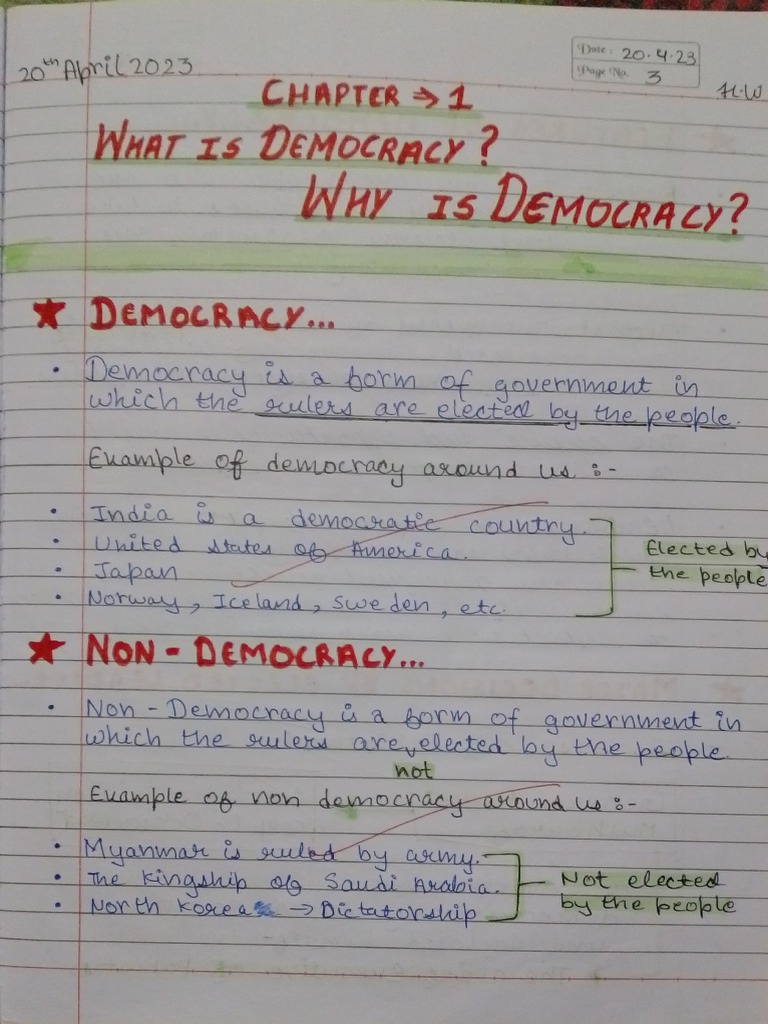 20th April 2023
Date: 20.4.23
Page No. 3
H.W
CHAPTER ⇒ 1
WHAT IS DEMOCRACY?
WHY IS DEMOCRACY?
★ DEMOCRACY...
• Democracy is a form of government in
which the rulers are elected by the people.
Example of democracy around us :-
• India is a democratic country.
• United states of America.
• Japan
• Norway, Iceland, sweden, etc.
Elected by
the people
★ NON - DEMOCRACY...
• Non - Democracy is a form of government in
which the rulers are, elected by the people.
not
Example of non democracy around us :-
• Myanmar is ruled by army.
• The kingship of Saudi Arabia.
• North Korea → Dictatorship
Not elected
by the people